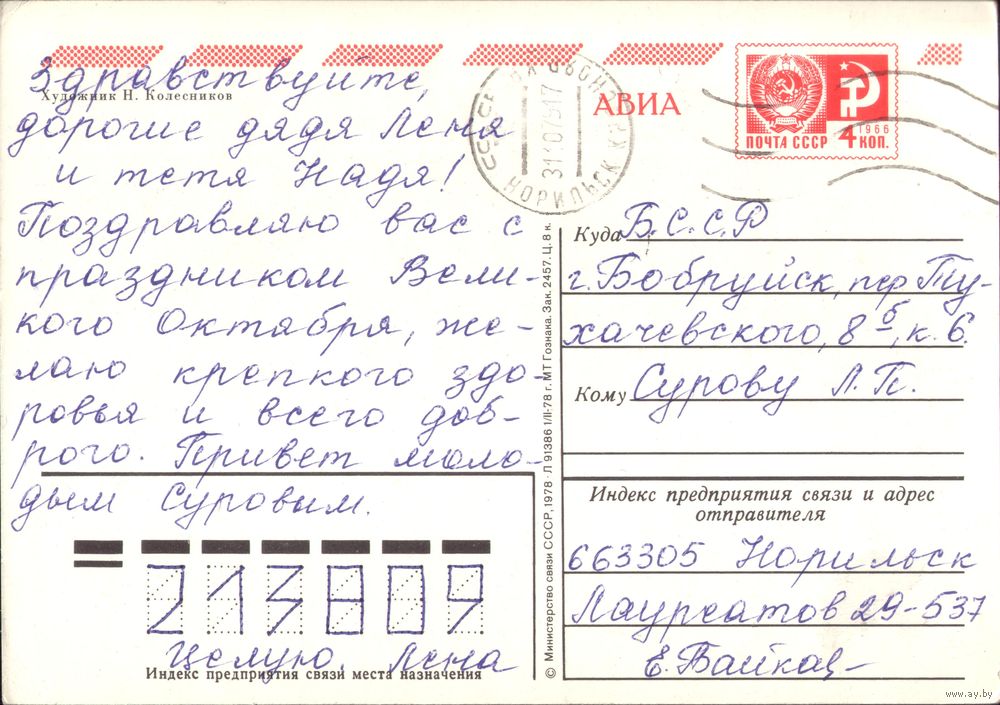 Здравствуйте,
Художник Н. Колесников
дорогие дядя Леня
и тетя Надя!
Поздравляю вас с
праздником Вели-
кого Октября, же-
лаю крепкого здо-
ровья и всего доб-
рого. Привет моло-
дым Суровым.
Целую, Лена
213809
Индекс предприятия связи места назначения
© Министерство связи СССР, 1978 · Л 91386 1/II-78 г. МТ Гознака. Зак. 2457. Ц. 8 к.
АВИА
СССР
31.10.79.17
НОРИЛЬСК
ПОЧТА СССР
1966
4 КОП.
Куда Б.С.С.Р
г. Бобруйск, пер Ту-
хачевского, 8 б, к. 6.
Кому Сурову Л. П.
Индекс предприятия связи и адрес
отправителя
663305 Норильск
Лауреатов 29-537
Е.
www.ay.by